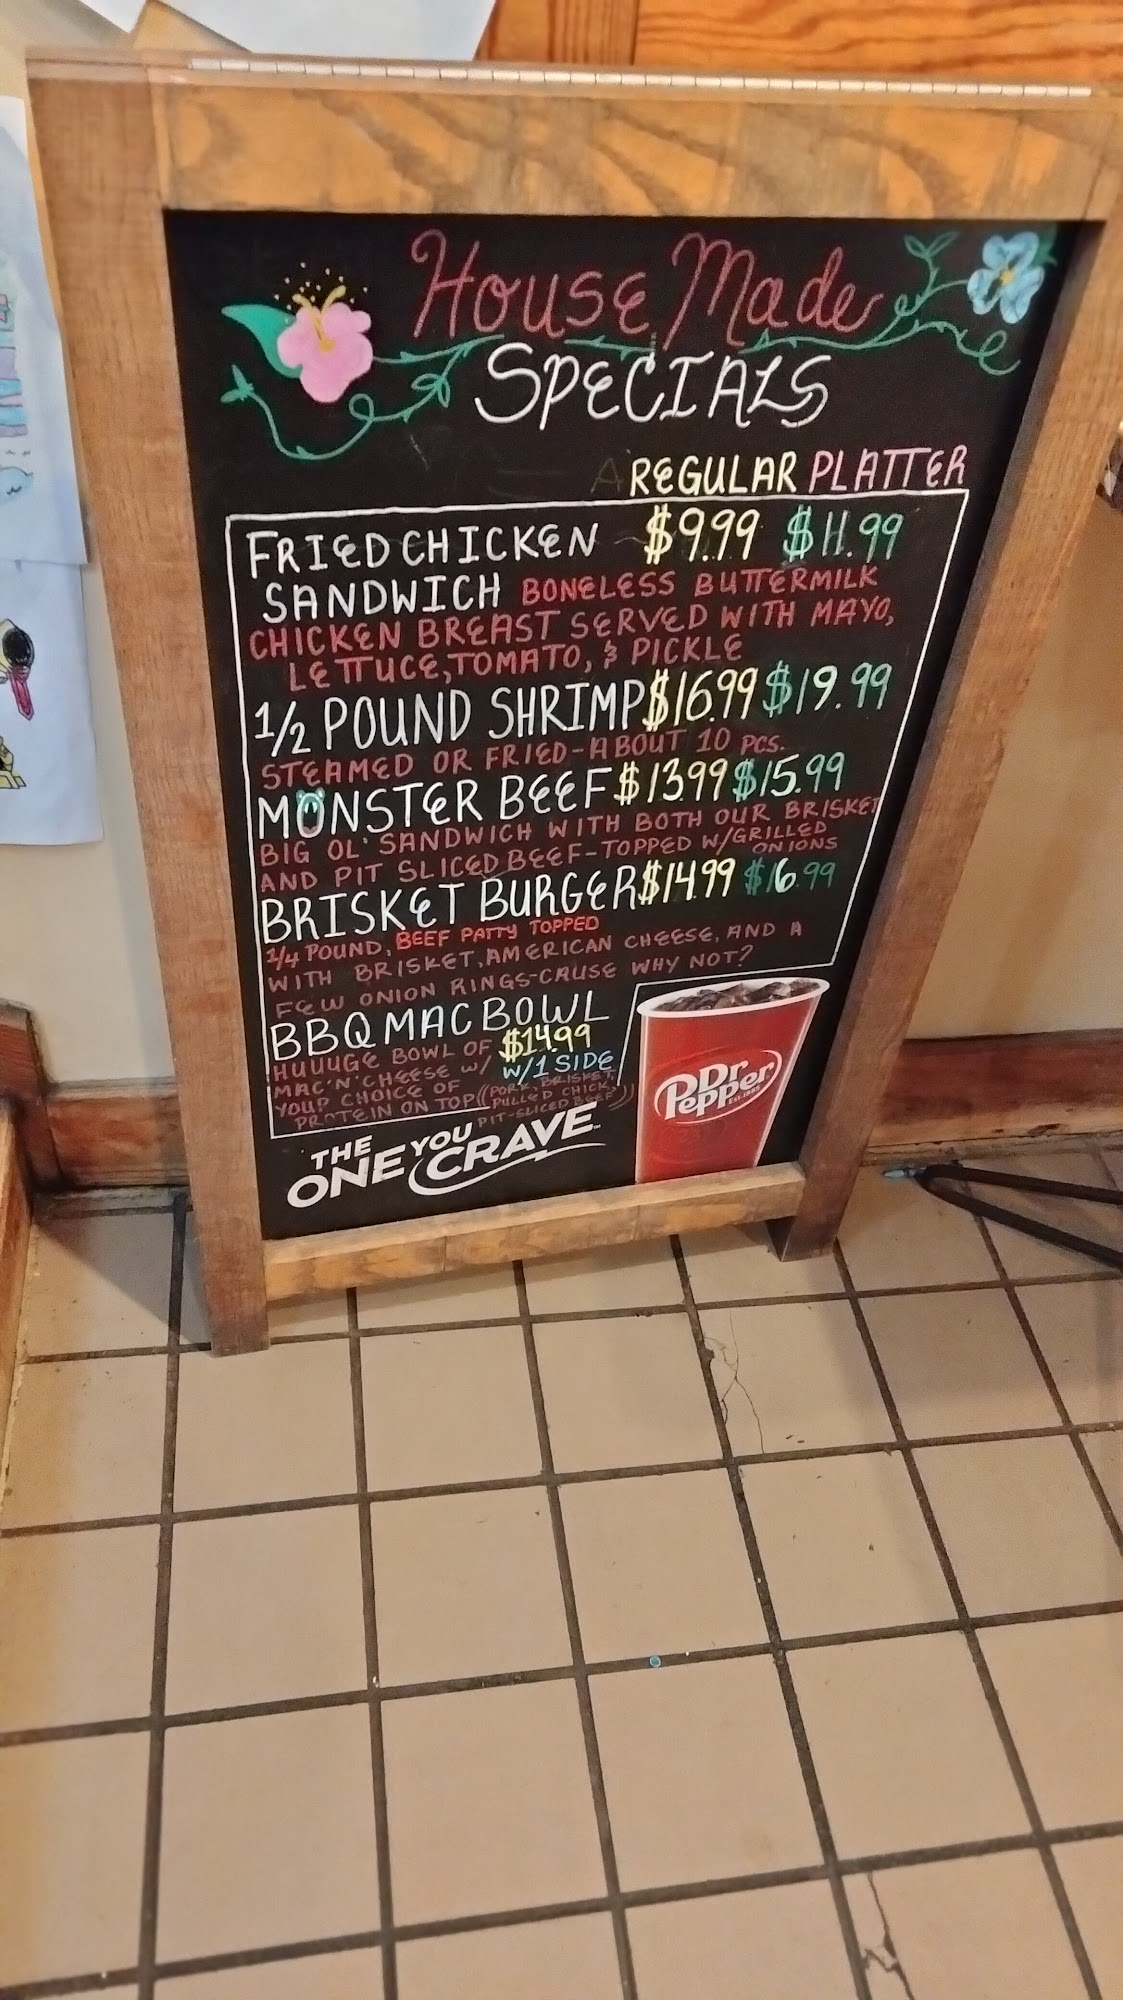 House Made
SPECIALS
REGULAR PLATTER
FRIED CHICKEN $9.99 $11.99
SANDWICH BONELESS BUTTERMILK
CHICKEN BREAST SERVED WITH MAYO,
LETTUCE, TOMATO, & PICKLE
1/2 POUND SHRIMP $16.99 $19.99
STEAMED OR FRIED-ABOUT 10 PCS.
MONSTER BEEF $13.99 $15.99
BIG OL' SANDWICH WITH BOTH OUR BRISKET
AND PIT SLICED BEEF-TOPPED W/GRILLED
ONIONS
BRISKET BURGER $14.99 $16.99
1/4 POUND, BEEF PATTY TOPPED
WITH BRISKET, AMERICAN CHEESE, AND A
FEW ONION RINGS-CAUSE WHY NOT?
BBQ MAC BOWL
HUUUGE BOWL OF $14.99
MAC'N'CHEESE W/ W/1 SIDE
YOUR CHOICE OF (PORK, BRISKET,
PROTEIN ON TOP PULLED CHICK,
PIT-SLICED BEEF)
THE
ONE YOU
CRAVE
Dr
Pepper
EST. 1885